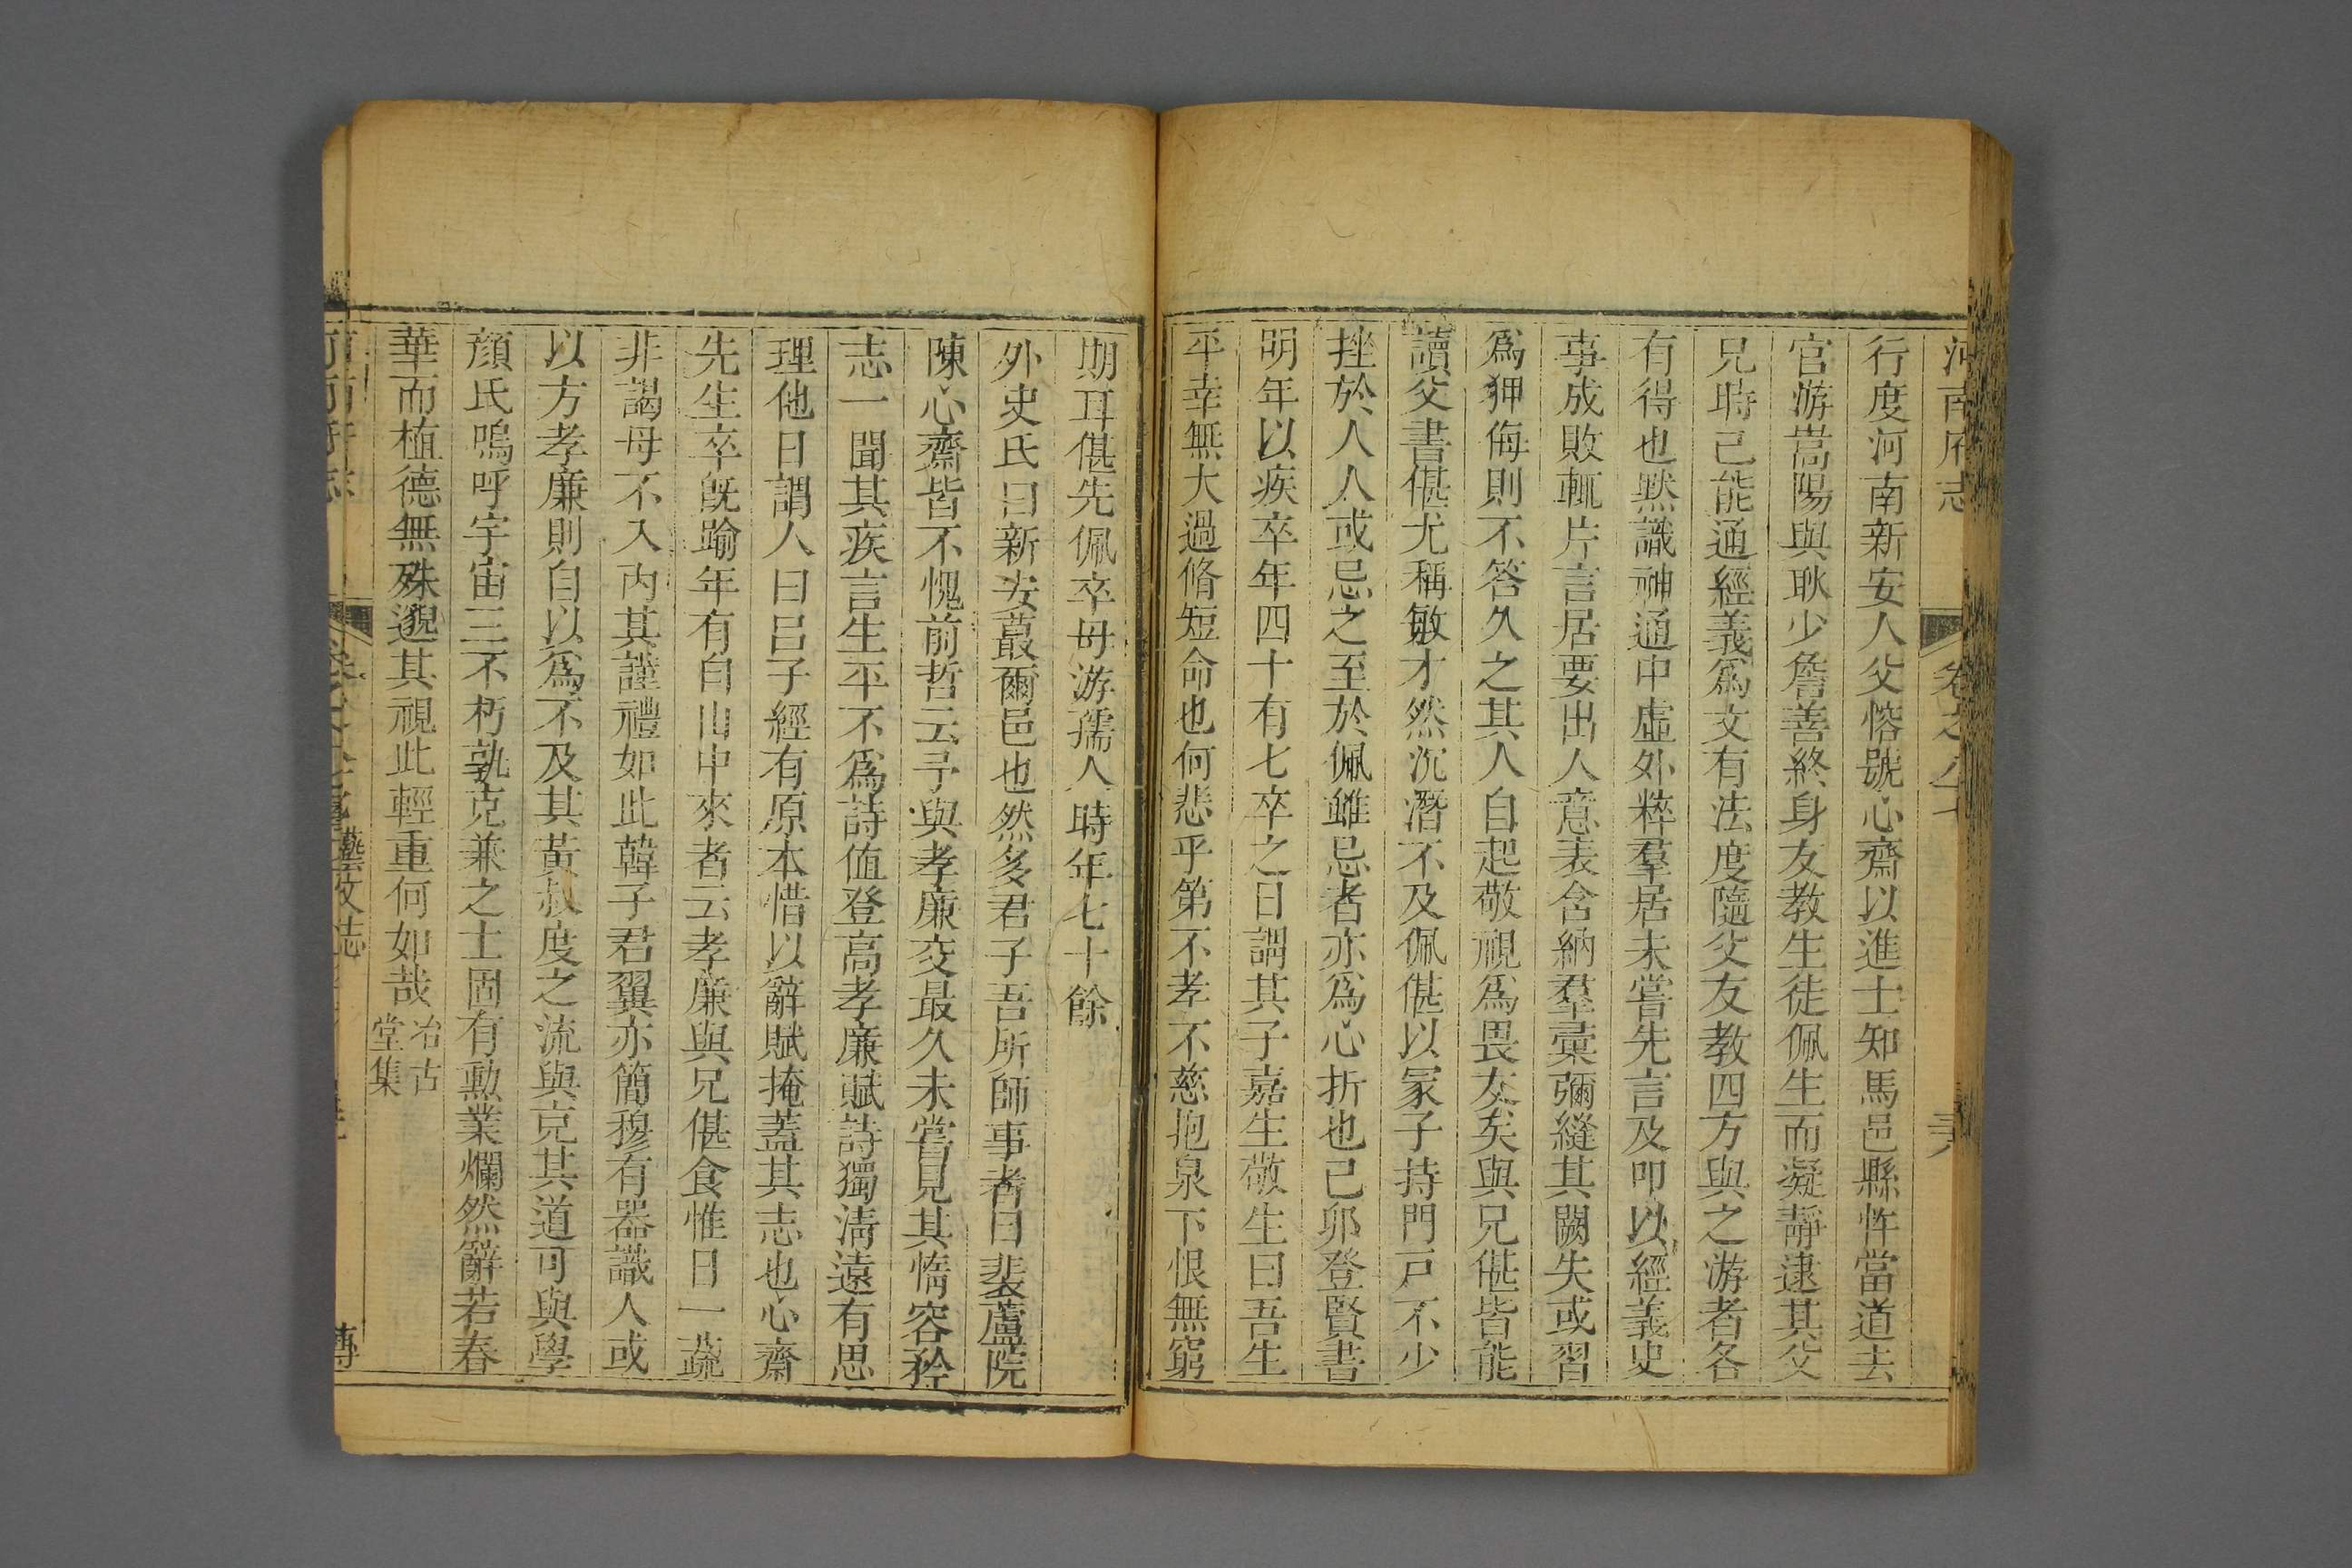 河南府志 卷之八十 三六
行度河南新安人父愘號心齋以進士知馬邑縣忤當道去
官游嵩陽與耿少詹善終身友教生徒佩生而凝靜逮其父
兄時已能通經義爲文有法度隨父友教四方與之游者各
有得也默識神通中虛外粹羣居未嘗先言及叩以經義史
事成敗輒片言居要出人意表含納羣彙彌縫其闕失或習
爲狎侮則不答久之其人自起敬視爲畏友矣與兄偡皆能
讀父書偡尤稱敏才然沉潛不及佩偡以冡子持門戸不少
挫於人人或忌之至於佩雖忌者亦爲心折也己卯登賢書
明年以疾卒年四十有七卒之日謂其子嘉生敬生曰吾生
平幸無大過脩短命也何悲乎第不孝不慈抱泉下恨無窮
期耳偡先佩卒母游孺人時年七十餘
外史氏曰新安蕞爾邑也然多君子吾所師事者曰裴蘆院
陳心齋皆不愧前哲云予與孝廉交最久未嘗見其惰容矜
志一聞其疾言生平不爲詩值登高孝廉賦詩獨淸遠有思
理他日謂人曰呂子經有原本惜以辭賦掩蓋其志也心齋
先生卒旣踰年有自山中來者云孝廉與兄偡食惟日一蔬
非謁母不入内其謹禮如此韓子君翼亦簡穆有器識人或
以方孝廉則自以爲不及其黃叔度之流與克其道可與學
顏氏嗚呼宇宙三不朽孰克兼之士固有勳業爛然辭若春
華而植德無殊邈其視此輕重何如哉 冶古堂集
藝文志 傳